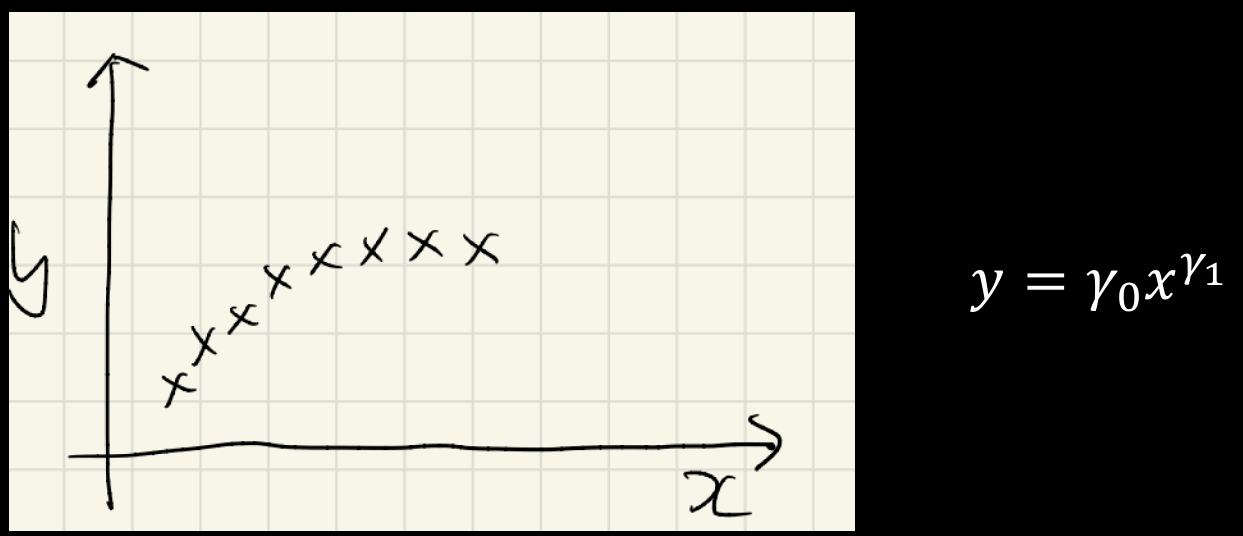 y
x
y = γ₀x^γ₁